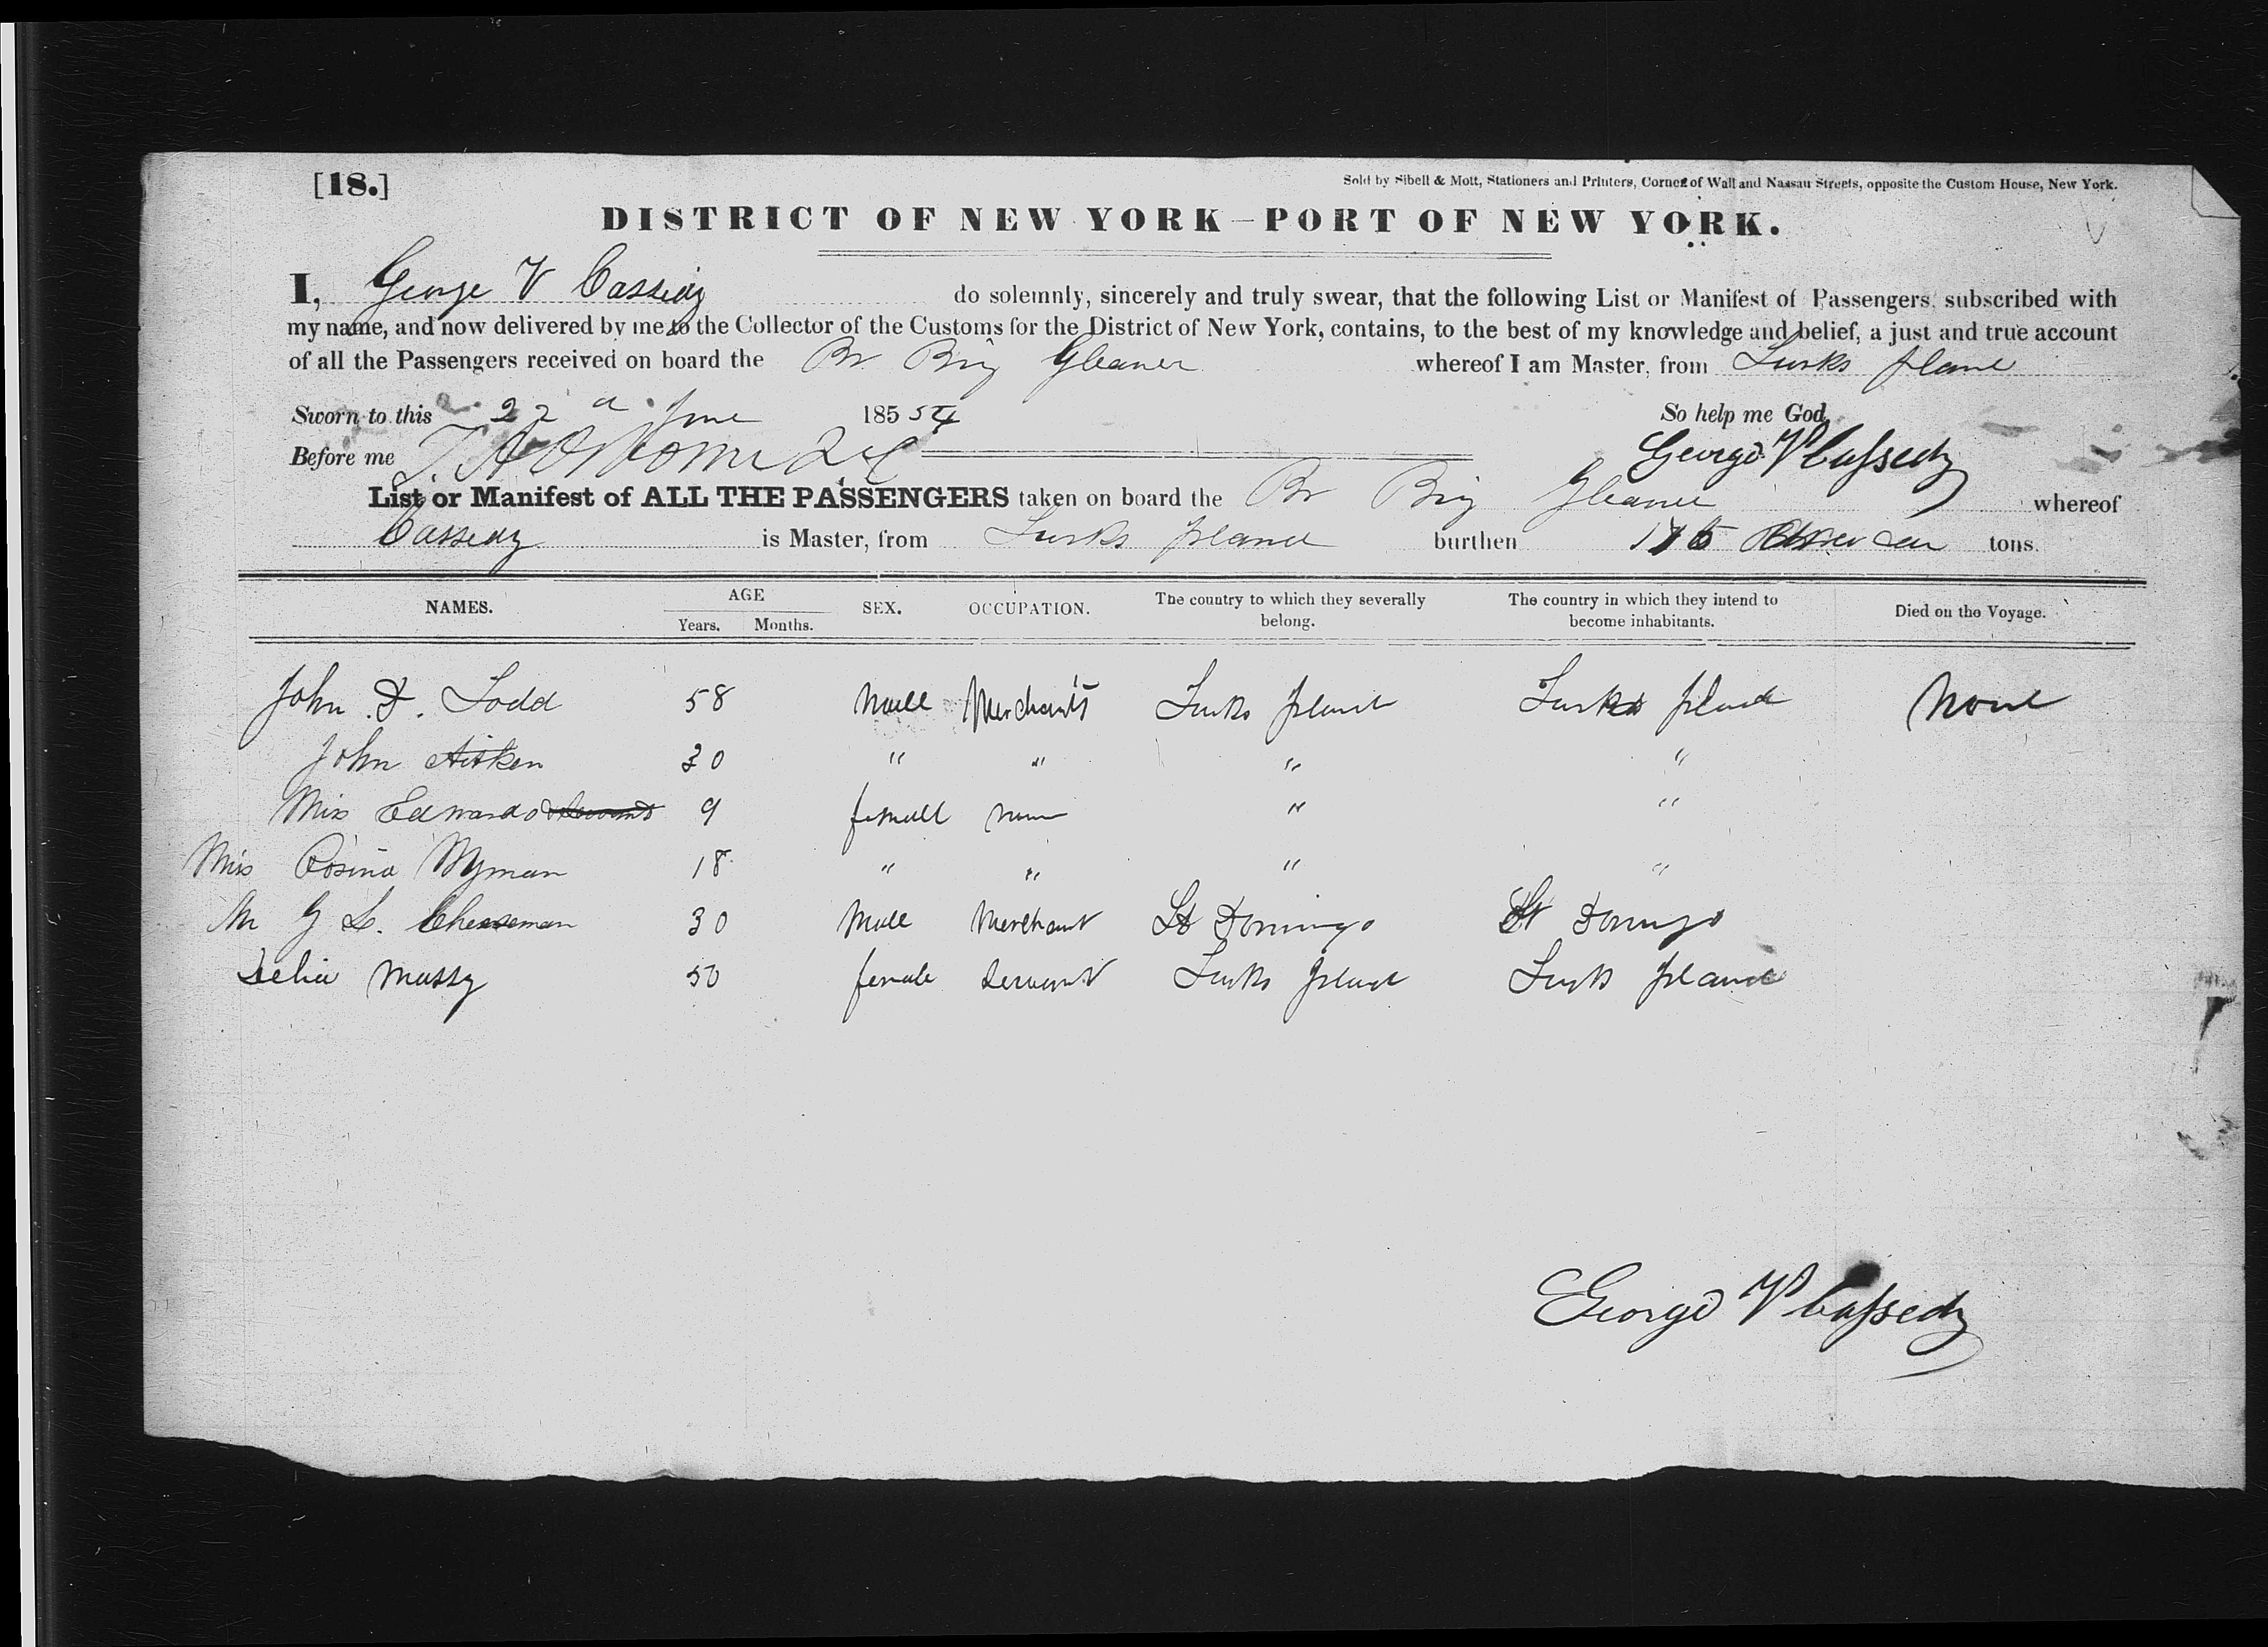 [18.]
Sold by Sibell & Mott, Stationers and Printers, Corner of Wall and Nassau Streets, opposite the Custom House, New York.
DISTRICT OF NEW YORK—PORT OF NEW YORK.
I, George V Cassedy do solemnly, sincerely and truly swear, that the following List or Manifest of Passengers, subscribed with
my name, and now delivered by me to the Collector of the Customs for the District of New York, contains, to the best of my knowledge and belief, a just and true account
of all the Passengers received on board the Br. Brig Gleaner whereof I am Master, from Turks Island
Sworn to this 22 d June 185 54 So help me God,
Before me George V Cassedy
List or Manifest of ALL THE PASSENGERS taken on board the Br Brig Gleaner whereof
Cassedy is Master, from Turks Island burthen tons.
NAMES. AGE Years. Months. SEX. OCCUPATION. The country to which they severally belong. The country in which they intend to become inhabitants. Died on the Voyage.
John D. Todd 58 Male Merchants Turks Island Turks Island None
John Aitken 30 " " " "
Miss Edwards 9 female none " "
Miss Rosina Wyman 18 " " " "
Mr G L. Cheeseman 30 Male Merchant St Domingo St Domingo
Delia Massy 50 female Servant Turks Island Turks Island
George V Cassedy